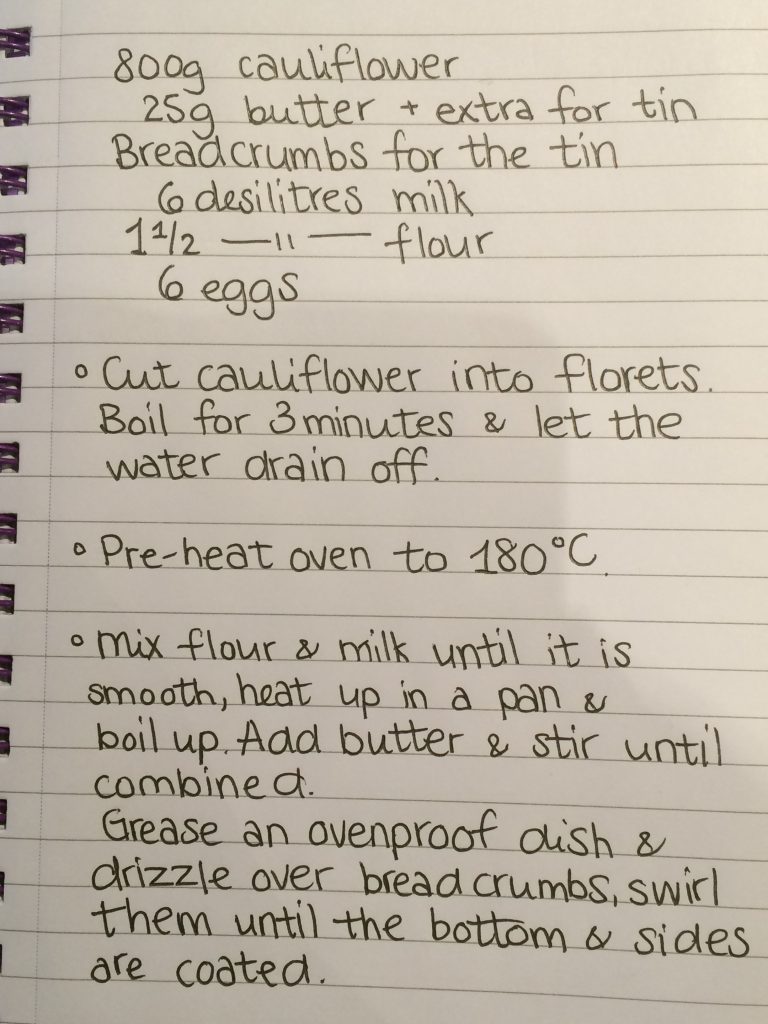 800g cauliflower
25g butter + extra for tin
Breadcrumbs for the tin
6 desilitres milk
1 1/2 —"— flour
6 eggs
° Cut cauliflower into florets.
Boil for 3 minutes & let the
water drain off.
° Pre-heat oven to 180°C.
° Mix flour & milk until it is
smooth, heat up in a pan &
boil up. Add butter & stir until
combined.
Grease an ovenproof dish &
drizzle over breadcrumbs, swirl
them until the bottom & sides
are coated.